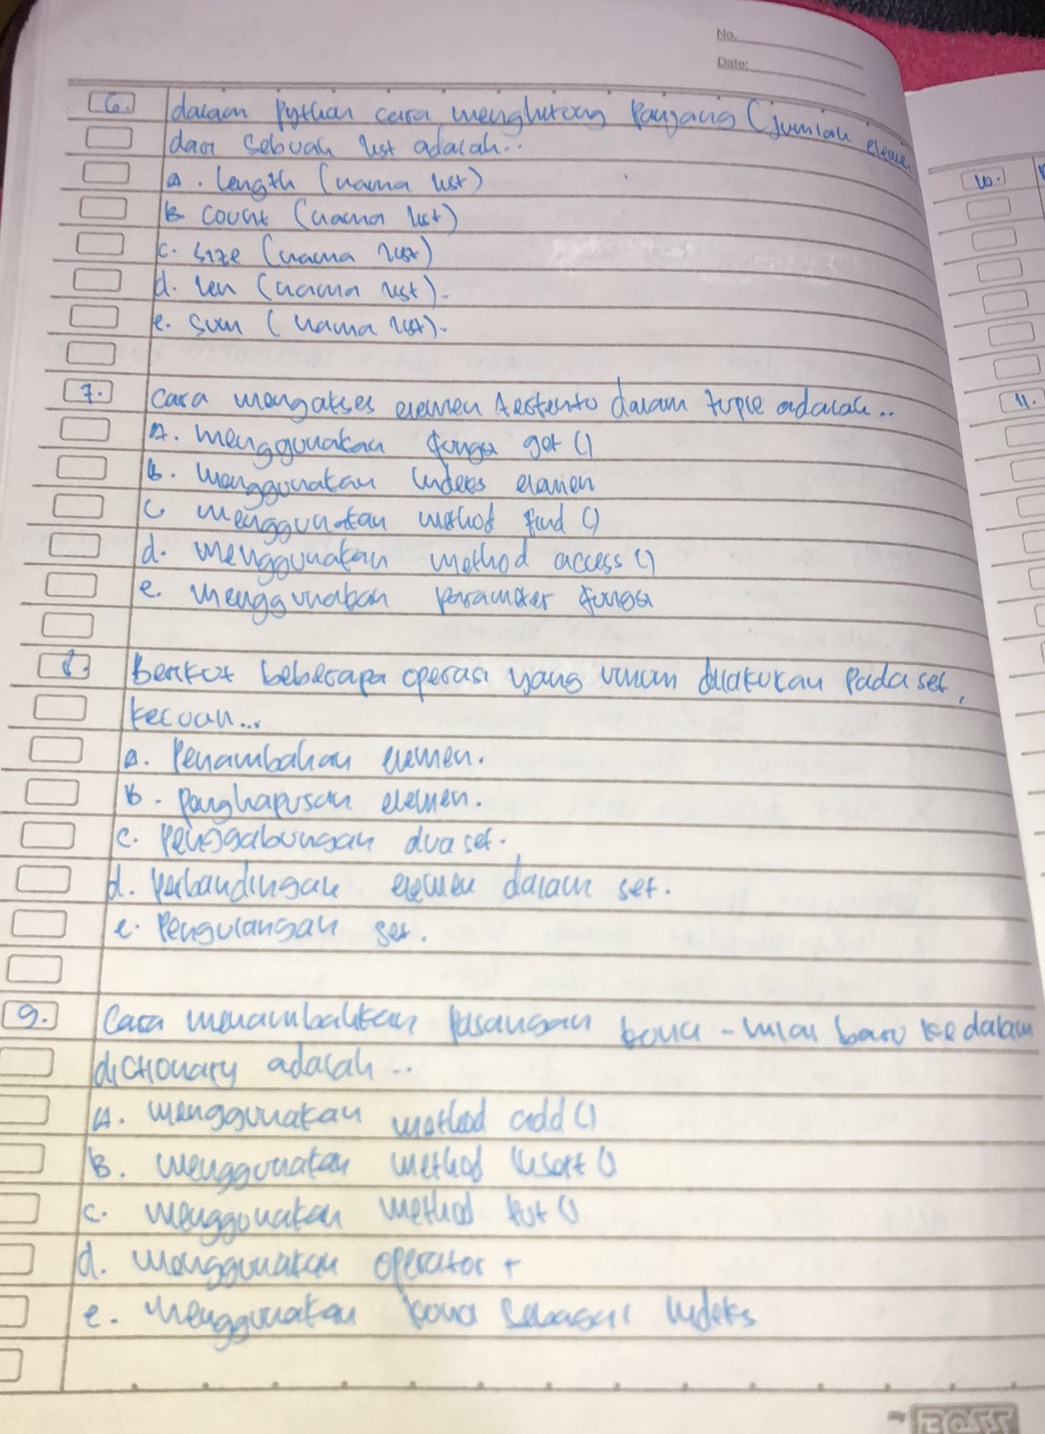 No.
Date:
6. dalam Python cara menghitung Panjang (jumlah eleme
dari sebuah list adalah..
A. length (nama list)
B count (nama list)
c. size (nama list)
d. len (nama list).
e. sum (nama list).
7. Cara mengakses elemen tertentu dalam tuple adalah..
A. menggunakan fungsi get ()
B. menggunakan indeks elemen
C menggunakan method find ()
d. menggunakan method access ()
e. menggunakan parameter fungsi
8. Berikut beberapa operasi yang umum dilakukan Pada set,
kecuali...
A. Penambahan elemen.
B. penghapusan elemen.
c. Penggabungan dua set.
d. perbandingan elemen dalam set.
e. Pengulangan set.
9. Cara menambahkan pasangan kunci - nilai baru ke dalam
dictionary adalah..
A. menggunakan method add ()
B. menggunakan method insert ()
c. menggunakan method put ()
d. menggunakan operator +
e. menggunakan kunci sebagai indeks
10.
11.
BOSS